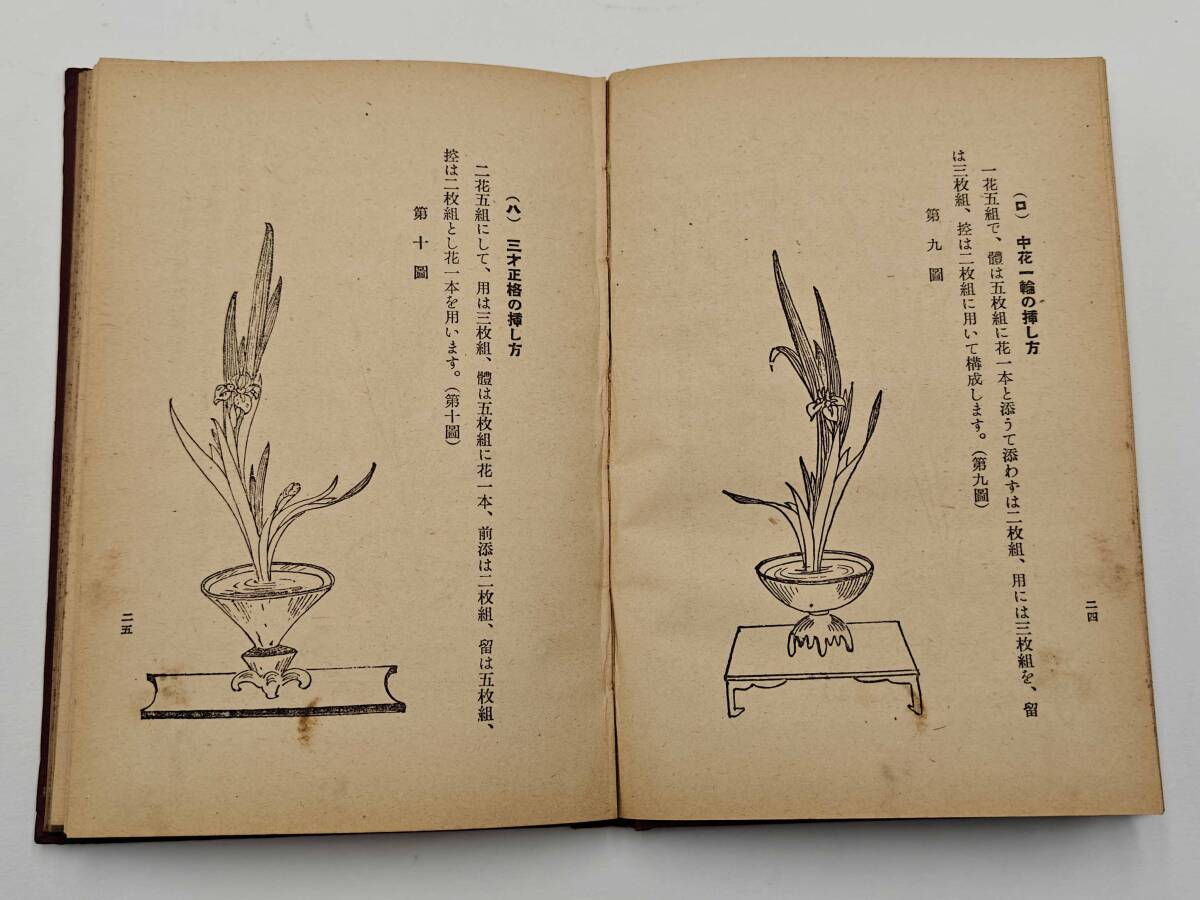 (ロ) 中花一輪の挿し方
一花五組で、體は五枚組に花一本と添うて添わすは二枚組、用には三枚組を、留
は三枚組、控は二枚組に用いて構成します。(第九圖)
第九圖
二四
(ハ) 三才正格の挿し方
二花五組にして、用は三枚組、體は五枚組に花一本、前添は二枚組、留は五枚組、
控は二枚組とし花一本を用います。(第十圖)
第十圖
二五